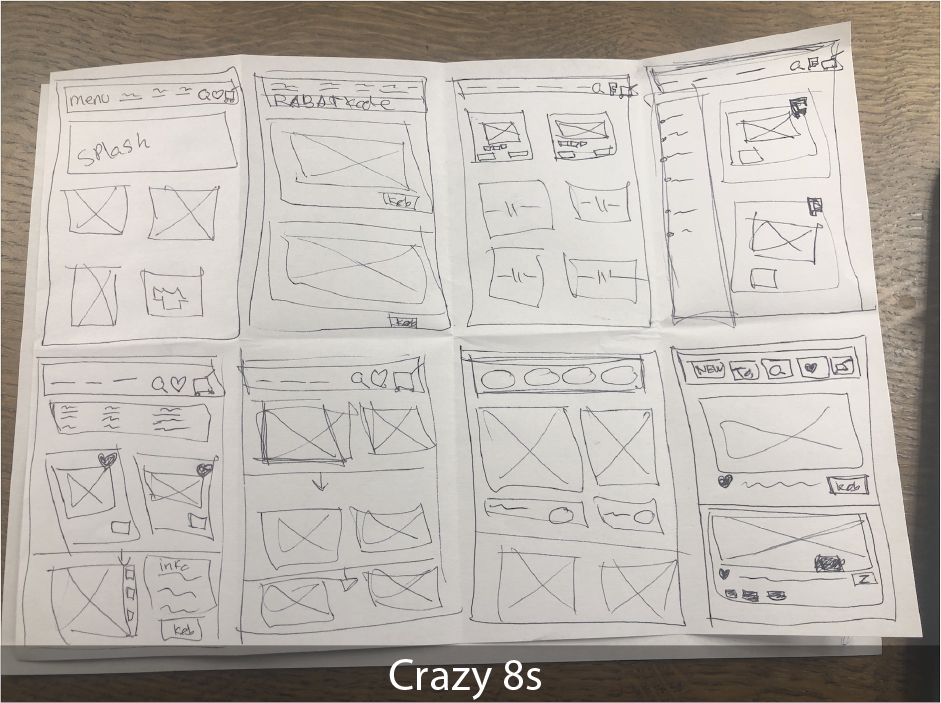 menu
splash
RABATkode
køb
køb
info
køb
NEW
køb
Crazy 8s